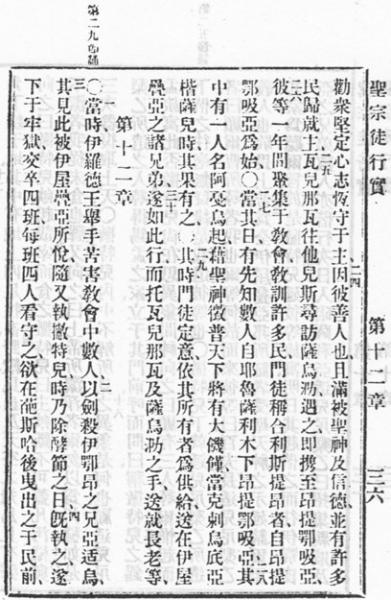 聖宗徒行實 第十二章 三六
勸衆堅定心志恆守于主因彼善人也且滿被聖神及信德並有許多
民歸就主瓦兒那瓦往他兒斯尋訪薩烏泐遇之即攜至昂提鄂吸亞
彼等一年間聚集于敎會敎訓許多民門徒稱合利斯提昂者自昂提
鄂吸亞爲始〇當其日有先知數人自耶魯薩利木下昂提鄂吸亞其
中有一人名阿戞烏起藉聖神徵普天下將有大饑僅當克剌烏底亞
楷薩兒時其果有之其時門徒定意依其所有者爲供給送在伊屋
疊亞之諸兄弟遂如此行而托瓦兒那瓦及薩烏泐之手送就長老等
第十二章
〇當時伊羅德王舉手苦害敎會中數人以劍殺伊鄂昂之兄亞适烏
其見此被伊屋疊亞所悅隨又執撒特兒時乃除酵節之日旣執之遂
下于牢獄交卒四班每班四人看守之欲在葩斯哈後曳出之于民前
第二九的誦